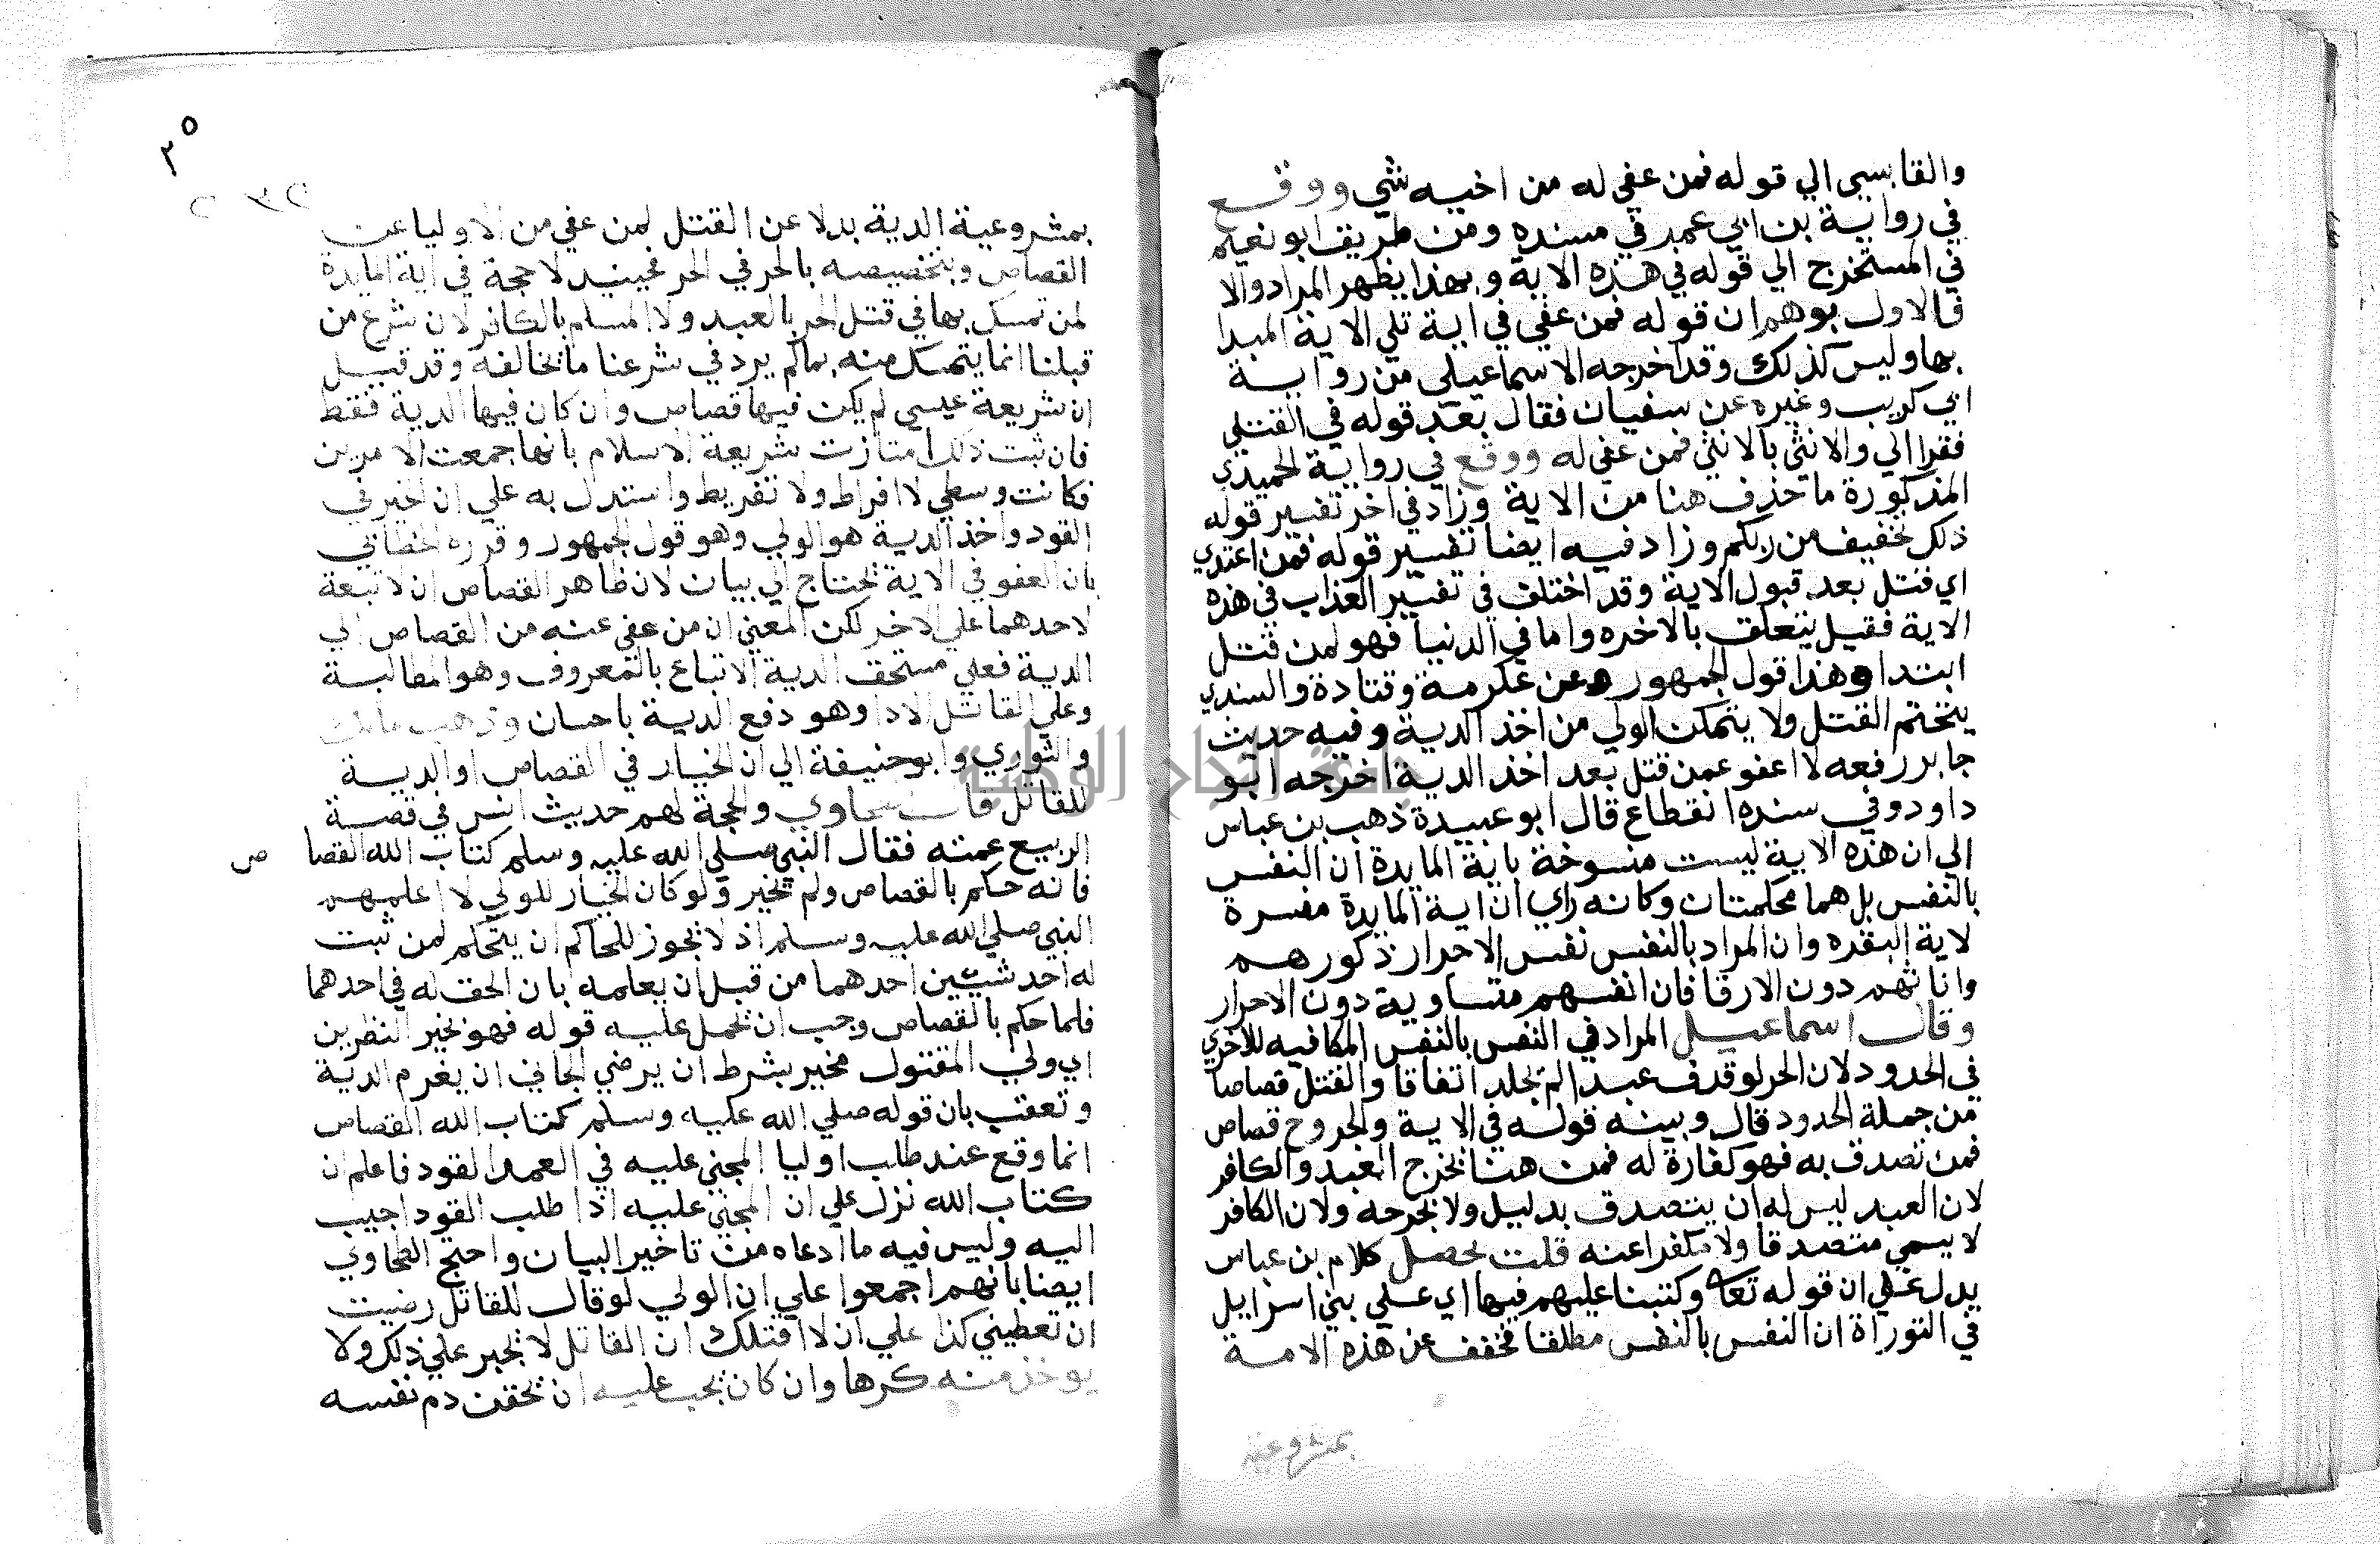 والقابسي الي قوله فمن عفي له من اخيه شي ووقع
في رواية بن ابي عمر في مسنده ومن طريق ابو نعيم
في المستخرج الي قوله في هذه الاية وبهذا يظهر المراد والا
فالاول يوهم ان قوله فمن عفي في اية تلي الاية المبدا
بها وليس كذلك وقد اخرجه الاسماعيلي من رواية
ابي كريب وغيره عن سفيان فقال بعد قوله في القتلي
فقرا الي والانثي بالانثي فمن عفي له ووقع في رواية الحميدي
المذكورة ما حذف هنا من الاية وزاد في اخر تفسير قوله
ذلك تخفيف من ربكم وزاد فيه ايضا تفسير قوله فمن اعتدي
اي قتل بعد قبول الاية وقد اختلف في تفسير العذاب في هذه
الاية فقيل يتعلق بالاخره واما في الدنيا فهو لمن قتل
ابتدا وهذا قول الجمهور وعن عكرمة وقتادة والسدي
يتختم القتل ولا يتمكن الولي من اخذ الدية وفيه حديث
جابر رفعه لا اعفو عمن قتل بعد اخذ الدية اخرجه ابو
داود وفي سنده انقطاع قال ابو عبيدة ذهب بن عباس
الي ان هذه الاية ليست منسوخة باية المايدة ان النفس
بالنفس بل هما محكمتان وكانه راي ان اية المايدة مفسرة
لاية البقره وان المراد بالنفس نفس الاحرار ذكورهم
واناثهم دون الارقا فان انفسهم متساوية دون الاحرار
وقال اسماعيل المراد في النفس بالنفس المكافيه للاخري
في الحدود لان الحر لو قذف عبدا لم يجلد اتفاقا والقتل قصاصا
من جملة الحدود قال وبينه قوله في الاية والجروح قصاص
فمن تصدق به فهو كفارة له فمن هنا يخرج العبد والكافر
لان العبد ليس له ان يتصدق بدليل ولا بجرحه ولان الكافر
لا يسمي متصدقا ولا مكفرا عنه قلت محصل كلام بن عباس
يدل علي ان قوله تعا وكتبنا عليهم فيها اي علي بني اسرايل
في التوراة ان النفس بالنفس مطلقا فخفف عن هذه الامة
بمشروعية
٢٥
بمشروعية الدية بدلا عن القتل لمن عفي من الاوليا عن
القصاص وبتخصيصه بالحر في الحر فحينيد لا حجة في اية المايدة
لمن تمسك بها في قتل الحر بالعبد ولا المسلم بالكافر لان شرع من
قبلنا انما يتمسك منه بما لم يرد في شرعنا ما يخالفه وقد قيل
ان شريعة عيسي لم يكن فيها قصاص وان كان فيها الدية فقط
فان ثبت ذلك امتازت شريعة الاسلام بانها جمعت الامرين
فكانت وسطي لا افراط ولا تفريط واستدل به علي ان الخير في
القود واخذ الدية هو الولي وهو قول الجمهور وقرره الخطابي
بان العفو في الاية يحتاج الي بيان لان ظاهر القصاص ان لا تبعة
لاحدهما علي الاخر لكن المعني ان من عفي عنه من القصاص الي
الدية فعلي مستحق الدية الاتباع بالمعروف وهو المطالبة
وعلي القاتل الادا وهو دفع الدية باحسان وذهب مالك
والثوري وابو حنيفة الي ان الخيار في القصاص او الدية
للقاتل قال الطحاوي والحجة لهم حديث انس في قصة
الربيع عمته فقال النبي صلي الله عليه وسلم كتاب الله القصاص
فانه حكم بالقصاص ولم يخير ولو كان الخيار للولي لا اعلمهم
النبي صلي الله عليه وسلم اذ لا يجوز للحاكم ان يتحكم لمن ثبت
له احد شيئين احدهما من قبل ان يعلمه بان الحق له في احدهما
فلما حكم بالقصاص وجب ان يحمل عليه قوله فهو بخير النظرين
اي ولي المقتول مخير بشرط ان يرضي الجاني ان يغرم الدية
وتعقب بان قوله صلي الله عليه وسلم كتاب الله القصاص
انما وقع عند طلب اوليا المجني عليه في العمد القود فاعلم ان
كتاب الله نزل علي ان المجني عليه اذا طلب القود اجيب
اليه وليس فيه ما ادعاه من تاخير البيان واحتج الطحاوي
ايضا بانهم اجمعوا علي ان الولي لو قال للقاتل رضيت
ان تعطيني كذا علي ان لا اقتلك ان القاتل لا يجبر علي ذلك ولا
يوخذ منه كرها وان كان يجب عليه ان يحقن دم نفسه
جامعة النجاح الوطنية